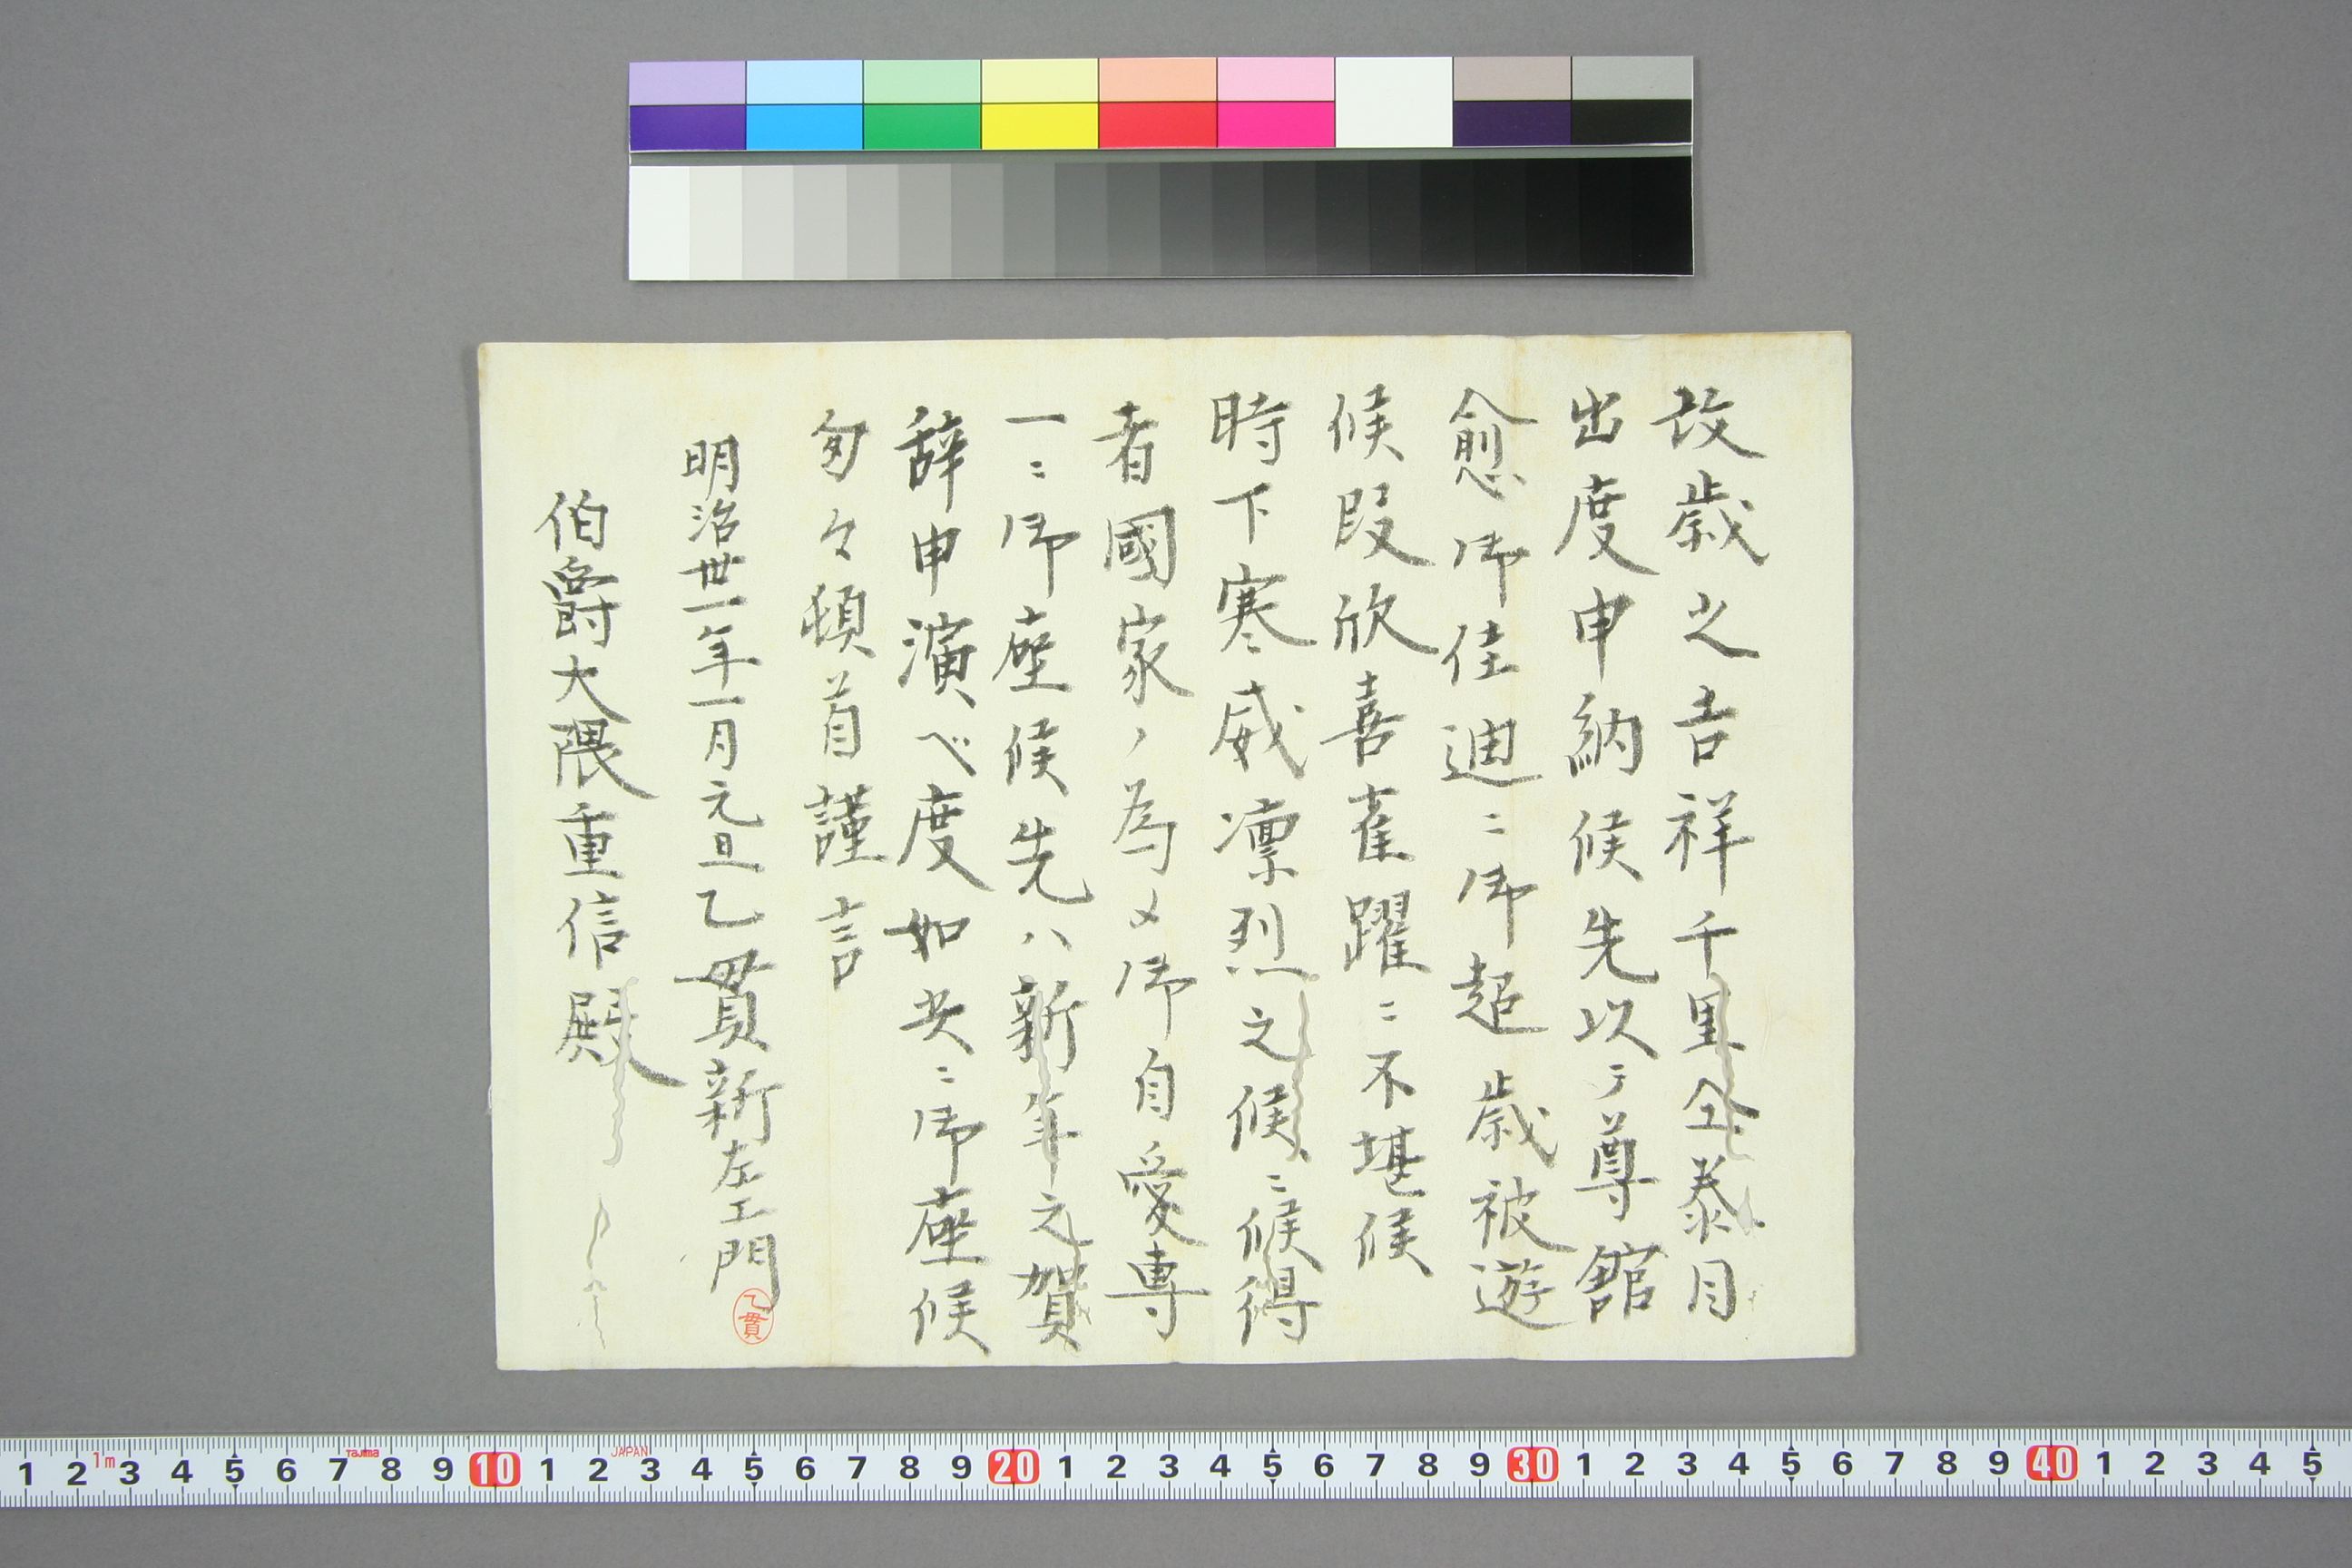 改歳之吉祥千里仝泰目
出度申納候先以テ尊舘
愈御佳迪ニ御超歳被遊
候段欣喜雀躍ニ不堪候
時下寒威凛烈之候ニ候得
者國家ノ為メ御自愛専
一ニ御座候先ハ新年之賀
辞申演べ度如此ニ御座候
匆々頓首謹言
明治卅一年一月元旦乙貫新左エ門
乙貫
伯爵大隈重信殿
1 2 1m 3 4 5 6 7 Tajima 8 9 10 1 2 JAPAN 3 4 5 6 7 8 9 20 1 2 3 4 5 6 7 8 9 30 1 2 3 4 5 6 7 8 9 40 1 2 3 4 5